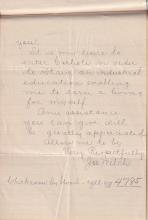 you?
It is my desire to
enter Carlisle in order
to obtain an industrial
education enabling
me to earn a living
for myself.
Any assistance
you can give will
be greatly appreciated
Allow me to be
Very Respectfully
Joe
4785